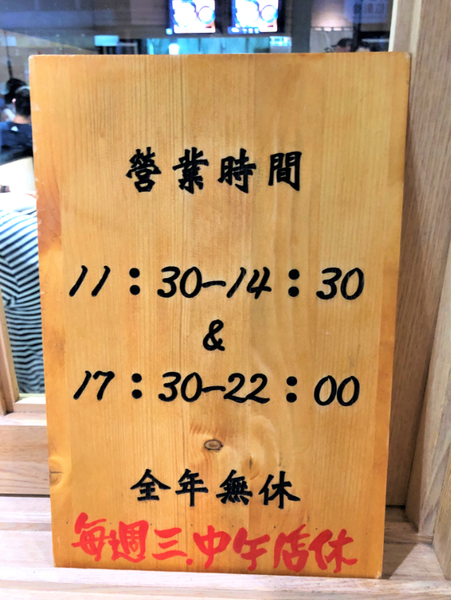 營業時間
11：30-14：30
&
17：30-22：00
全年無休
每週三.中午店休